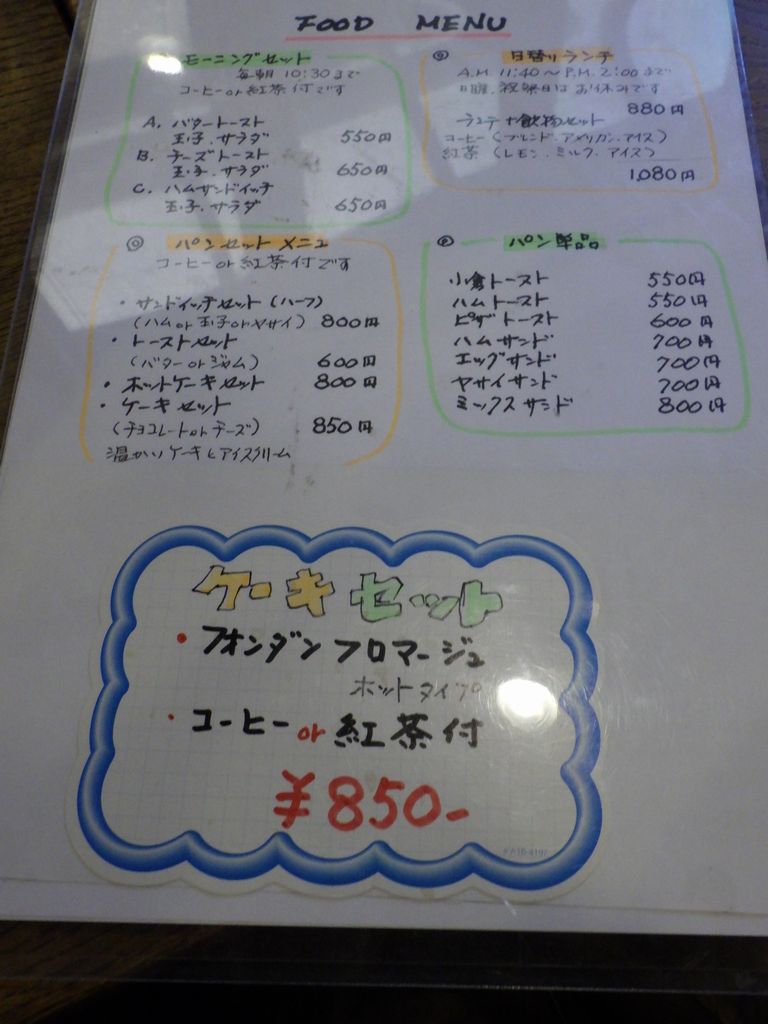 FOOD MENU
モーニングセット
毎朝 10:30まで
コーヒーor紅茶付です
A. バタートースト
玉子.サラダ 550円
B. チーズトースト
玉子.サラダ 650円
C. ハムサンドイッチ
玉子.サラダ 650円
◎ 日替りランチ
A.M. 11:40〜P.M. 2:00まで
日曜.祝祭日はお休みです
880円
ランチ+飲物セット
コーヒー(ブレンド.アメリカン.アイス)
紅茶(レモン.ミルク.アイス)
1,080円
◎ パンセットメニュー
コーヒーor紅茶付です
・サンドイッチセット(ハーフ)
(ハムor玉子orヤサイ) 800円
・トーストセット
(バターorジャム) 600円
・ホットケーキセット 800円
・ケーキセット
(チョコレートorチーズ) 850円
温かいケーキとアイスクリーム
◎ パン単品
小倉トースト 550円
ハムトースト 550円
ピザトースト 600円
ハムサンド 700円
エッグサンド 700円
ヤサイサンド 700円
ミックスサンド 800円
ケーキセット
・フォンダンフロマージュ
ホットタイプ
・コーヒーor紅茶付
¥850-